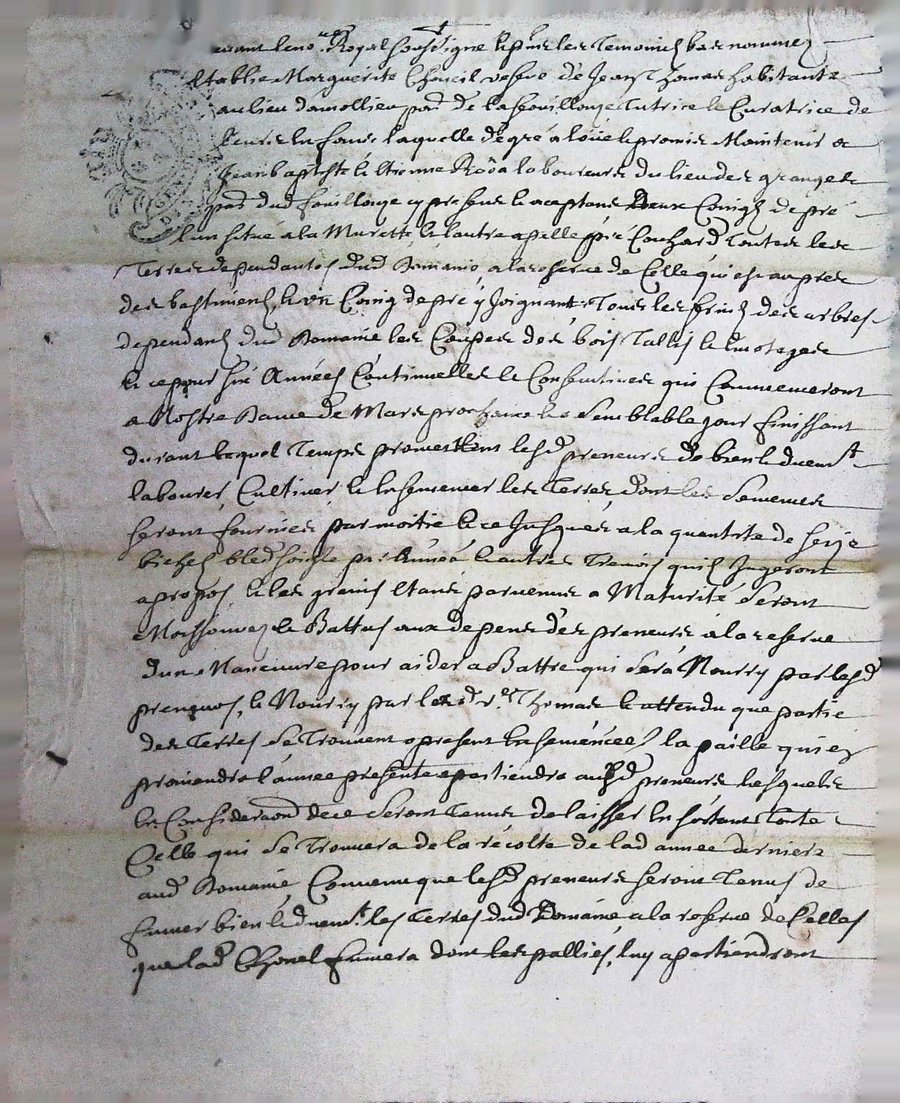 devant le no.re Royal soussigné et p̃ns les temoins bas nommez
establie Marguerite Choueil vefve de Jean Thomas habitante
au lieu damollieu parr. de la fouillouze tutrice et Curatrice de
leurs enfans laquelle de gré a loüé et promis Maintenir a
Jean baptiste et Estienne laboureurs du lieu des granges
parr. dud fouillouze cy presens et aceptans deux Coings de pré
l'un situé a la Murette et l'autre apellé pré Couhard toutes les
Terres dependantes dud domaine a la reserve de Celle qui est aupres
des bastimens, et un Coing de pré y Joignant, Tous les fruits des arbres
dependans dud domaine les Coupes des bois Tallis et
et ce pour six Années Continuelles et Consecutives qui Commenceront
a Nostre dame de Mars prochaine et a semblable jour finissant
durant lequel Temps promettent lesd preneurs de bien et duem.t
labourer, Cultiver et Ensemencer les Terres dont les semences
seront fournies par moitié et ce Jusques a la quantité de seize
bichets bled soigle par Année et autres Tremois quils Jugeront
a propos et les grains estans parvenus a Maturité seront
Moissonnez et Battus aux depens des preneurs a la reserve
dun Maneuvre pour aider a Battre qui sera Nourry par lesd
preneurs, et Nourry par lad v.e Thomas et attendu que partie
des Terres se trouvent a present Ensemencées la paille qui en
proviendra l'année presente apartiendra ausd preneurs lesquels
en Consideraõn de ce seront tenus de laisser en sortant toute
Celle qui se trouvera de la récolte de lad année derniere
aud domaine Convenu que lesd preneurs seront Tenus de
fumer bien et duem.t les Terres dud Domaine a la reserve de Celles
que lad fumera dont les pallies, luy apartiendront